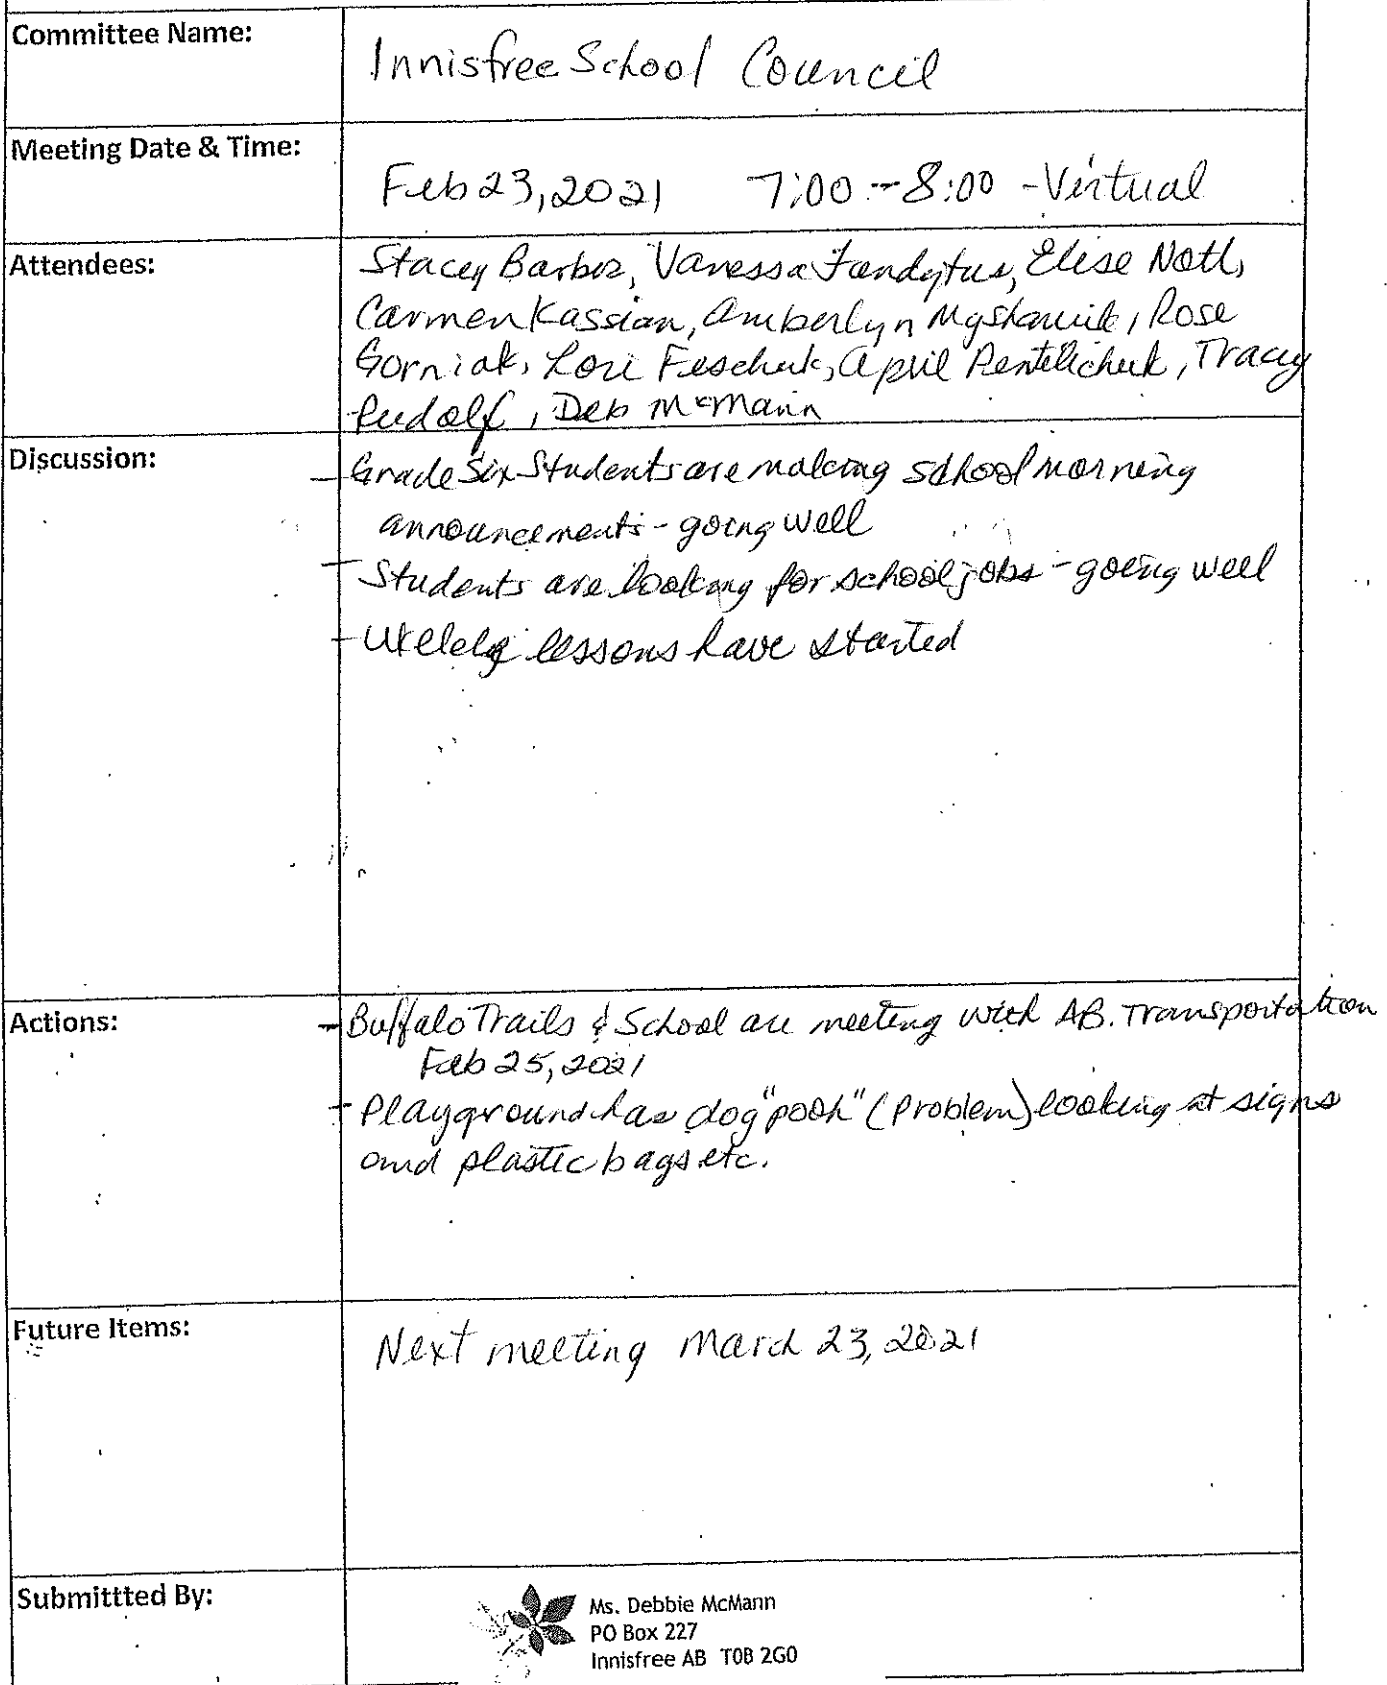 Committee Name:
Innisfree School Council
Meeting Date & Time:
Feb 23, 2021 7:00 - 8:00 - Virtual
Attendees:
Stacey Barber, Vanessa Elise
Carmen Kassian, Amberlyn Rose
Gorniak, Lori Feschuk, April Tracey
Rudolf, Deb McMann
Discussion:
- Grade Six Students are making school morning
announcements - going well
- Students are looking for school jobs - going well
- lessons have started
Actions:
- Buffalo Trails & School are meeting with AB. Transportation
Feb 25, 2021
- Playground has dog "pooh" (problem) looking at signs
and plastic bags etc.
Future Items:
Next meeting March 23, 2021
Submittted By:
Ms. Debbie McMann
PO Box 227
Innisfree AB T0B 2G0